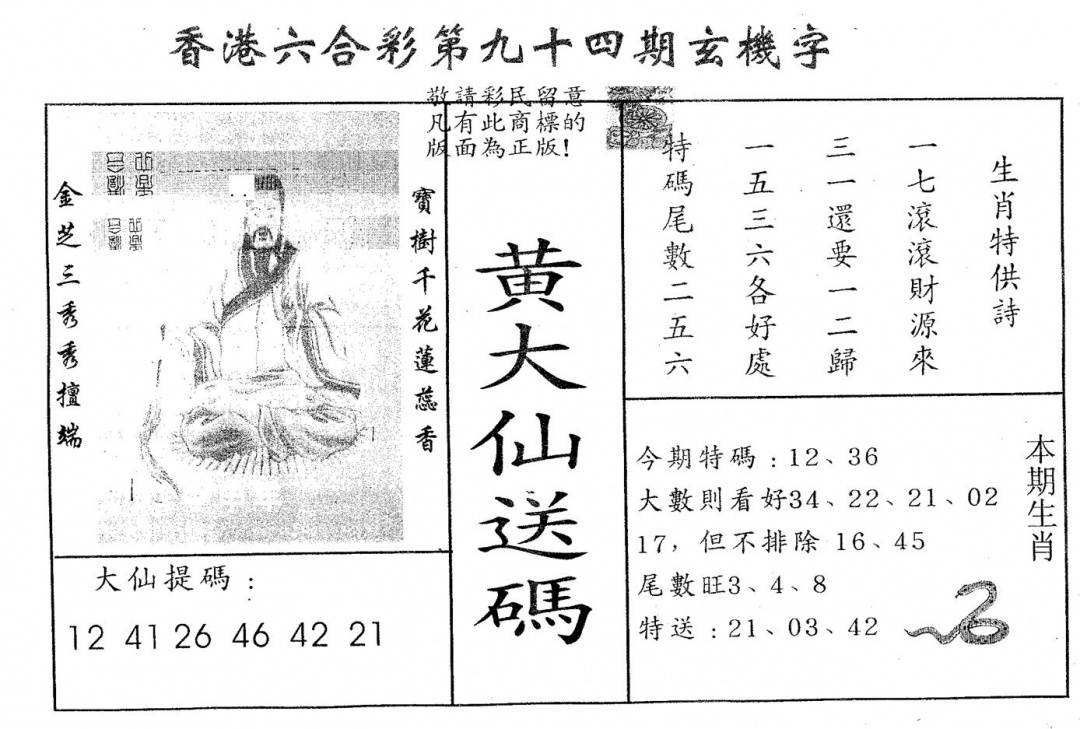 香港六合彩第九十四期玄機字
敬請彩民留意
凡有此商標的
版面為正版!
金芝三秀秀擅端
寶樹千花蓮蕊香
黄大仙送碼
生肖特供詩
一七滾滾財源來
三一還要一二歸
一五三六各好處
特碼尾數二五六
大仙提碼:
12 41 26 46 42 21
本期生肖
今期特碼:12、36
大數則看好34、22、21、02
17,但不排除 16、45
尾數旺3、4、8
特送:21、03、42